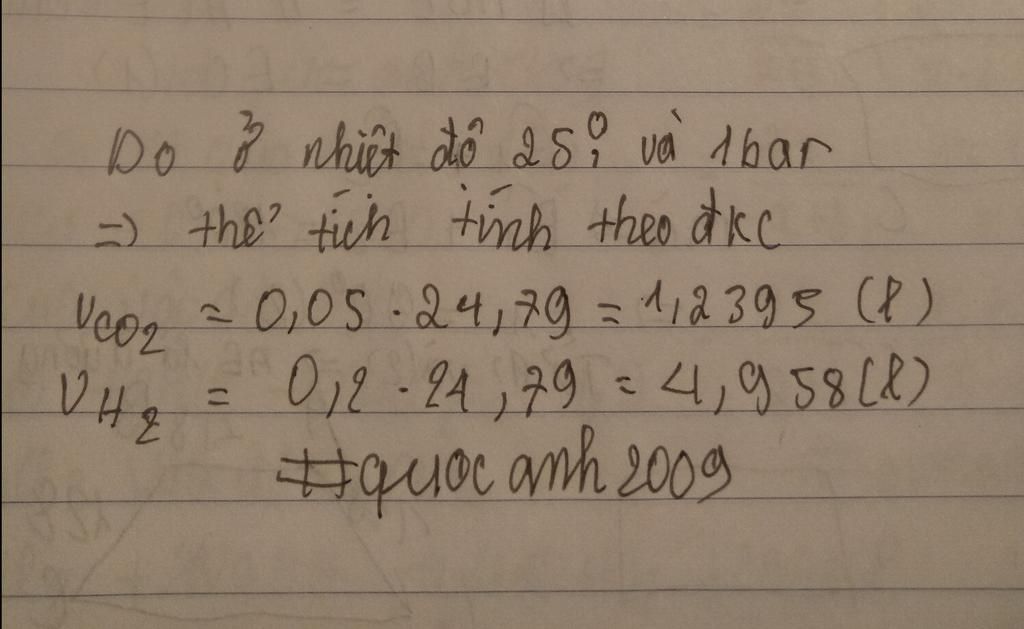 Do ở nhiệt độ 25° và 1bar
=> thể tích tính theo đkc
VCO2 = 0,05 . 24,79 = 1,2395 (l)
VH2 = 0,2 . 24,79 = 4,958 (l)
#quocanh2009